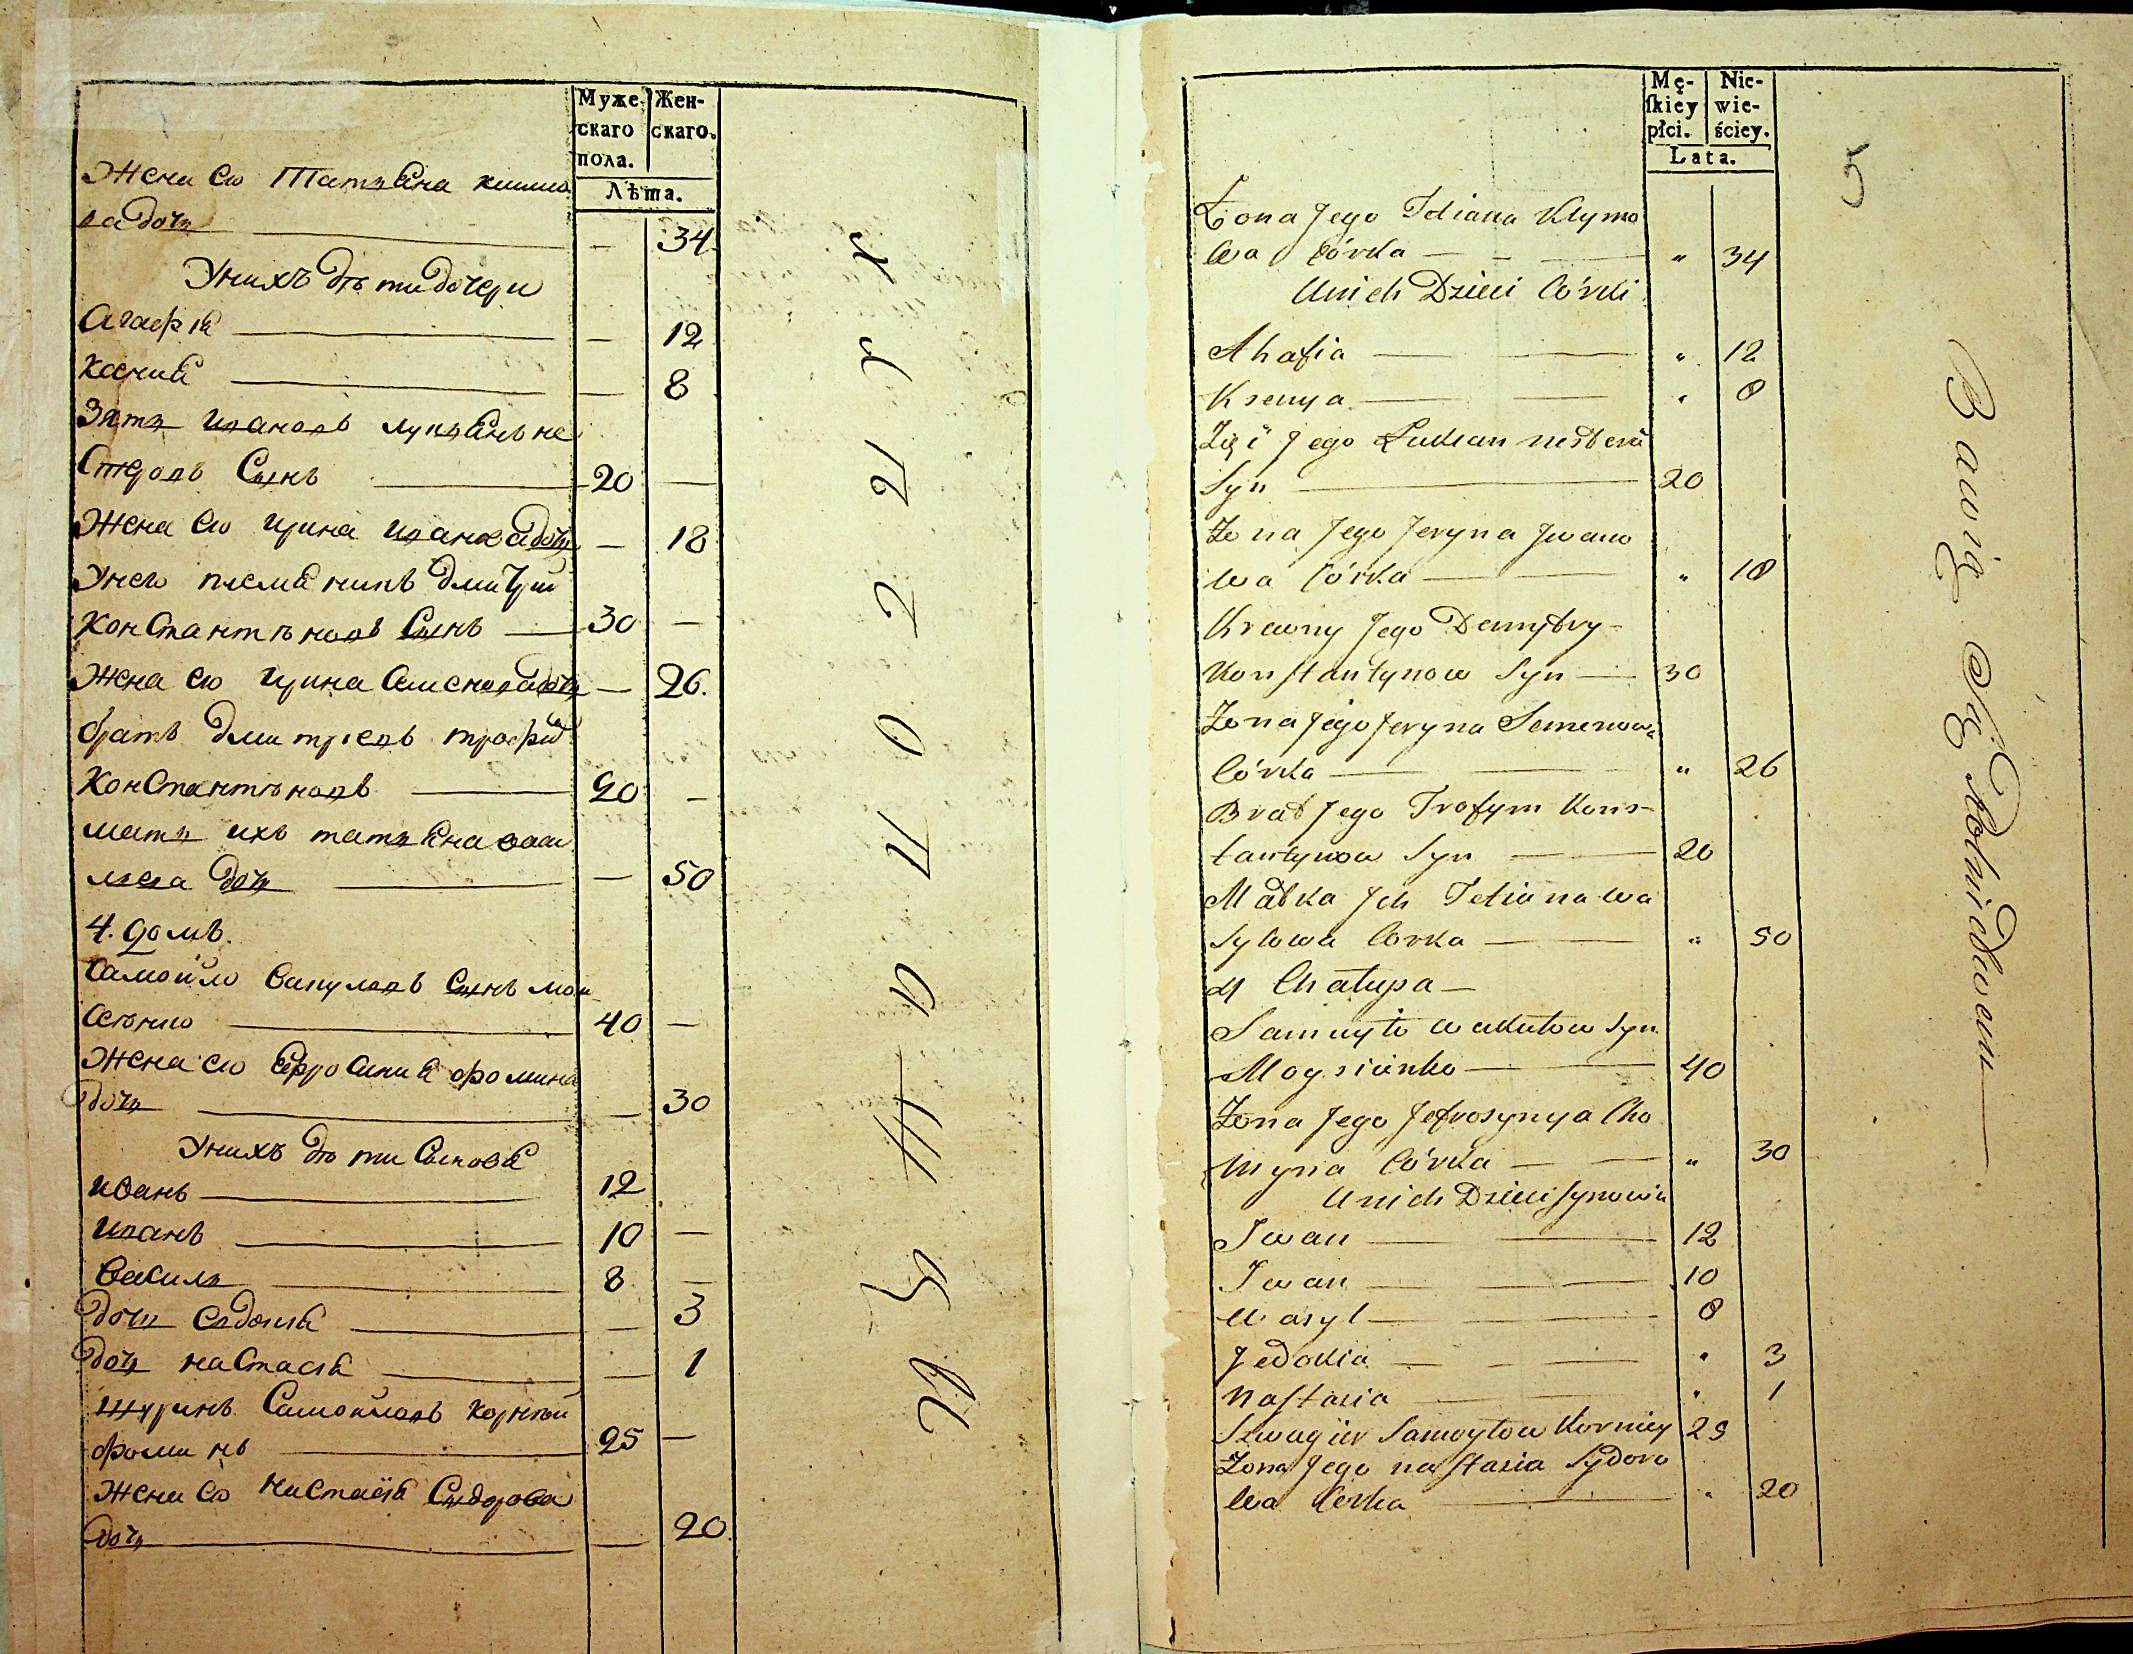 Муже- Жен-
скаго скаго.
пола.
Лѣта.
Жена его Татьяна климо
ва дочь — 34
У нихъ дѣти дочери
Агафія — 12
Ксенія — 8
Зять Ивановъ лукьянъ не
стеровъ Сынъ 20 —
Жена его ирина иванова дочь — 18
У него племянникъ дмитрій
Константѣновъ Сынъ 30 —
Жена его ирина Семенова дочь — 26.
братъ дмитріевъ трофим
Константѣновъ 20 —
мать ихъ татьяна васи
лева дочь — 50
4. домъ.
Самойло Вакуловъ Сынъ мои
сеѣнко 40 —
Жена его Ефросинія фомина
дочь — 30
У нихъ дѣти Сыновя
иванъ 12
иванъ 10 —
василь 8 —
дочь евдокія — 3
дочь настасія — 1
шуринъ Самойловъ Корнѣй
фоминъ 25 —
Жена его Настасія Сидорова
дочь — 20
Mę- Nie-
ſkiey wie-
płci. ściey.
Lata.
5
Żona Jego Tetiana Klymo
wa Córka — „ 34
U nich Dzieci Córki
Ahafia — „ 12
Ksenya — „ 8
Zięć Jego Łukian nesterów
Syn — 20
Żona Jego Jeryna Jwano
wa Córka — „ 18
Krewny Jego Demytry
Konstantynow Syn — 30
Żona Jego Jeryna Semenowa
Córka — „ 26
Brat Jego Trofym Kons-
tantynow Syn — 20
Matka Jch Tetiana Wa
sylowa Corka — „ 50
4 Chałupa —
Samuyło Wakułow Syn
Moysieinko — 40
Żona Jego Jefrosynya Cho
myna Córka — „ 30
U nich Dzieci Synowie
Iwan — 12
Iwan — 10
Wasyl — 8
Jedokia — „ 3
Nastasia — „ 1
Szwagier Samoyłow Korniey 25
Żona Jego nastasia Sydoro
wa Corka — „ 20